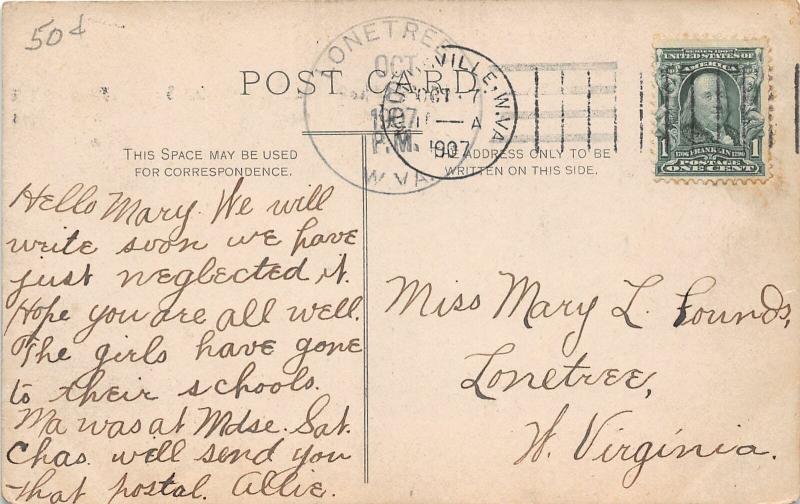 50¢
LONETREE
OCT
1907
P.M.
W.VA.
VILLE, W.VA.
OCT 7
A
1907
SERIES 1902
UNITED STATES OF
AMERICA
1706 FRANKLIN 1790
1 1
POSTAGE
ONE CENT
POST CARD
THIS SPACE MAY BE USED
FOR CORRESPONDENCE.
THE ADDRESS ONLY TO BE
WRITTEN ON THIS SIDE.
Hello Mary. We will
write soon we have
just neglected it.
Hope you are all well.
The girls have gone
to their schools.
Ma was at Mdse. Sat.
Chas. will send you
that postal. Allie.
Miss Mary L. Pounds,
Lonetree,
W. Virginia.